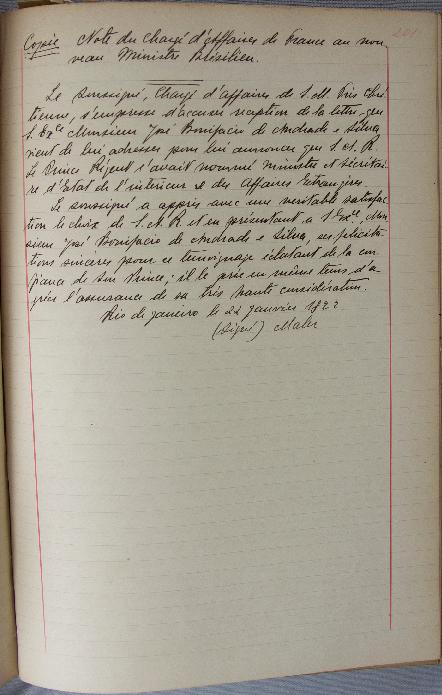 201
Copie Note du Chargé d'Affaires de France au nou-
veau Ministre Brésilien.
Le soussigné, Chargé d'affaires de S. M. Très Chré-
tienne, s'empresse d'accuser reception de la lettre que
S. Exce Monsieur José Bonifacio de Andrada e Silva
vient de lui adresser pour lui annoncer que S. A. R.
Le Prince Régent l'avait nommé ministre et sécrétai-
re d'Etat de l'intérieur et des Affaires Etrangères.
Le soussigné a appris avec une veritable satisfac-
tion le choix de S. A. R et en présentant a S. Exce, Mon-
sieur José Bonifacio de Andrada e Silva, ses félicita-
tions sincères pour ce témoignage éclatant de la con-
fiance de son Prince; il le prie en même tems d'a-
gréer l'assurance de sa très haute considération.
Rio de Janeiro le 22 janvier 1822
(Signé) Maler